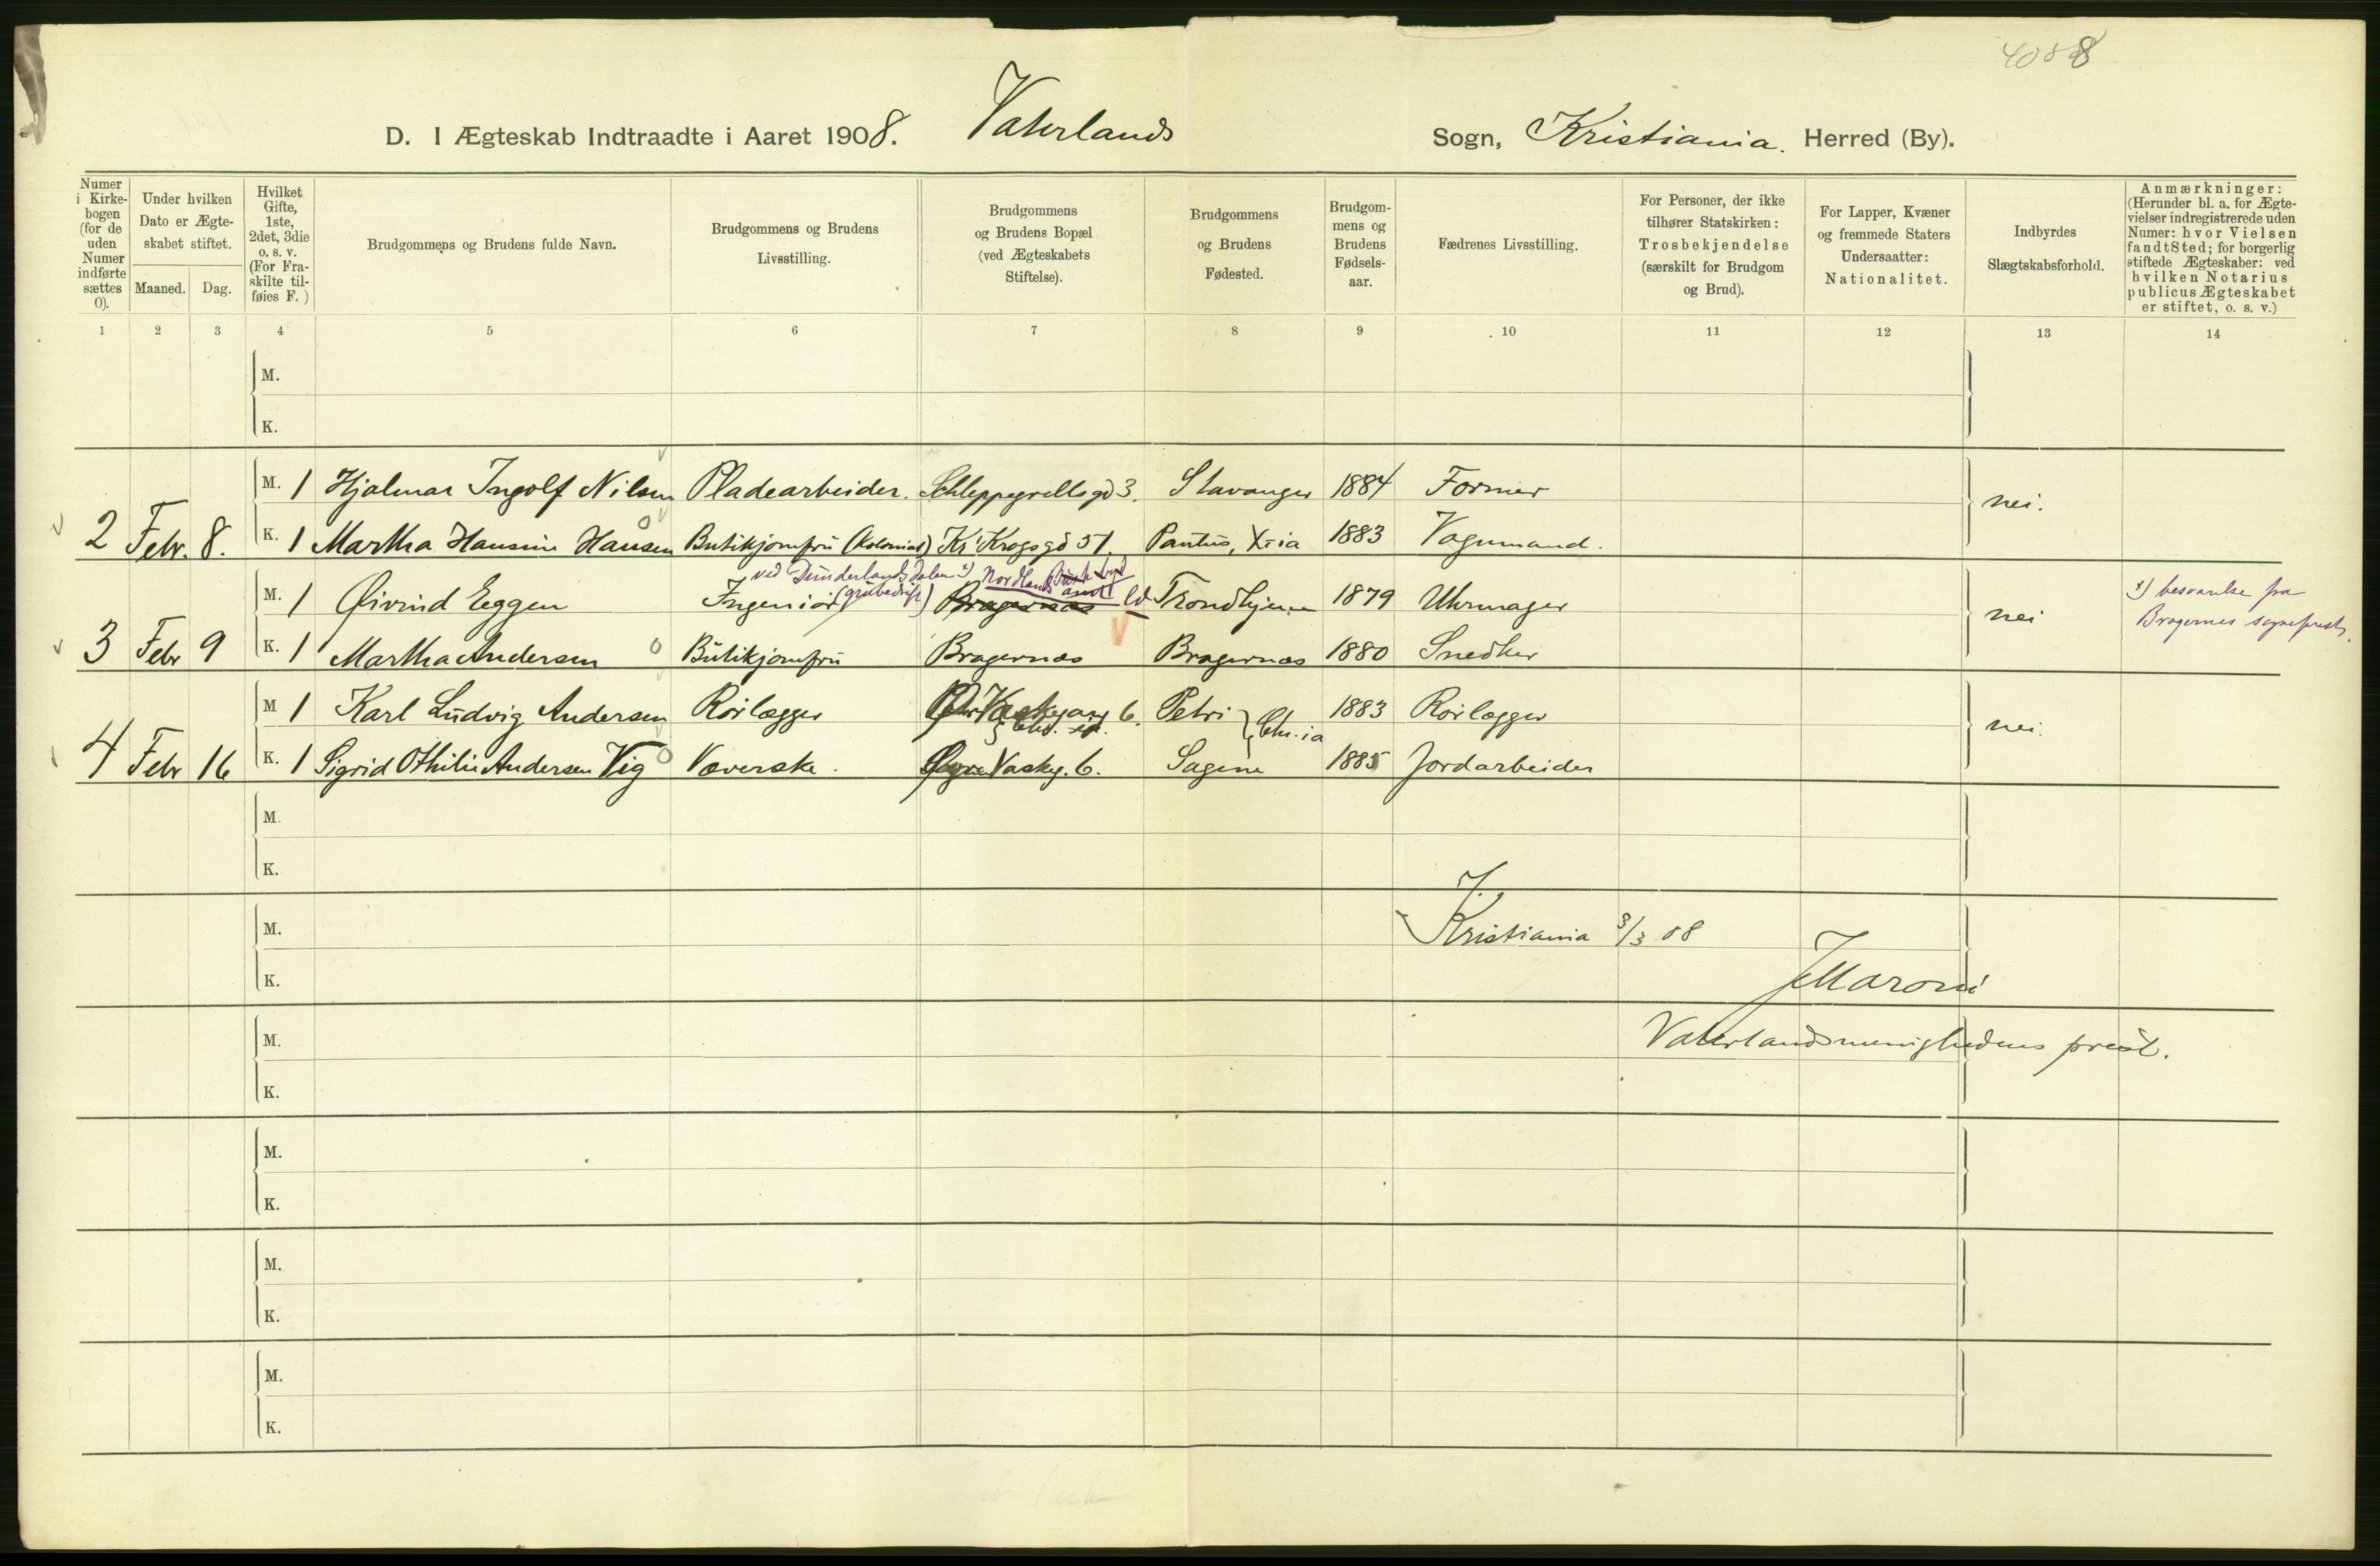 4088
D. I Ægteskab Indtraadte i Aaret 1908. Vaterlands Sogn, Kristiania. Herred (By).
Numer i Kirkebogen (for de uden Numer indførte sættes 0).
Under hvilken Dato er Ægteskabet stiftet.
Maaned. Dag.
Hvilket Gifte, 1ste, 2det, 3die o. s. v. (For Fraskilte tilføies F.)
Brudgommens og Brudens fulde Navn.
Brudgommens og Brudens Livsstilling.
Brudgommens og Brudens Bopæl (ved Ægteskabets Stiftelse).
Brudgommens og Brudens Fødested.
Brudgommens og Brudens Fødselsaar.
Fædrenes Livsstilling.
For Personer, der ikke tilhører Statskirken: Trosbekjendelse (særskilt for Brudgom og Brud).
For Lapper, Kvæner og fremmede Staters Undersaatter: Nationalitet.
Indbyrdes Slægtskabsforhold.
Anmærkninger: (Herunder bl. a. for Ægtevielser indregistrerede uden Numer: hvor Vielsen fandt Sted; for borgerlig stiftede Ægteskaber: ved hvilken Notarius publicus Ægteskabet er stiftet, o. s. v.)
1 2 3 4 5 6 7 8 9 10 11 12 13 14
M.
K.
M. 1 Hjalmar Ingolf Nilsen Pladearbeider. Schleppegrellsgd 3. Stavanger 1884 Former nei.
2 Febr. 8. K. 1 Martha Hansine Hansen Butikjomfru (Kolonial) Kr Krogsgd 51. Paulus, X-ia 1883 Vognmand.
ved Dunderlandsdalen x) Nordlands amt
M. 1 Øivind Eggen Ingeniør (grubedrift) Bragernæs Trondhjem 1879 Uhrmager nei x) besvarelse fra
Bragernes sogneprest.
3 Febr 9 K. 1 Martha Andersen Butikjomfru Bragernæs Bragernæs 1880 Snedker
M 1 Karl Ludvig Andersen Rørlægger 6. Petri } Chr.ia 1883 Rørlægger nei.
4 Febr 16 K. 1 Sigrid Othilie Andersen Vig Væverske. Vaskg. 6. Sagene 1885 Jordarbeider
M.
K.
M. Kristiania 3/3 08
K. J Maroni
M. Vaterlandsmenighedens prest.
K.
M.
K.
M.
K.
M.
K.